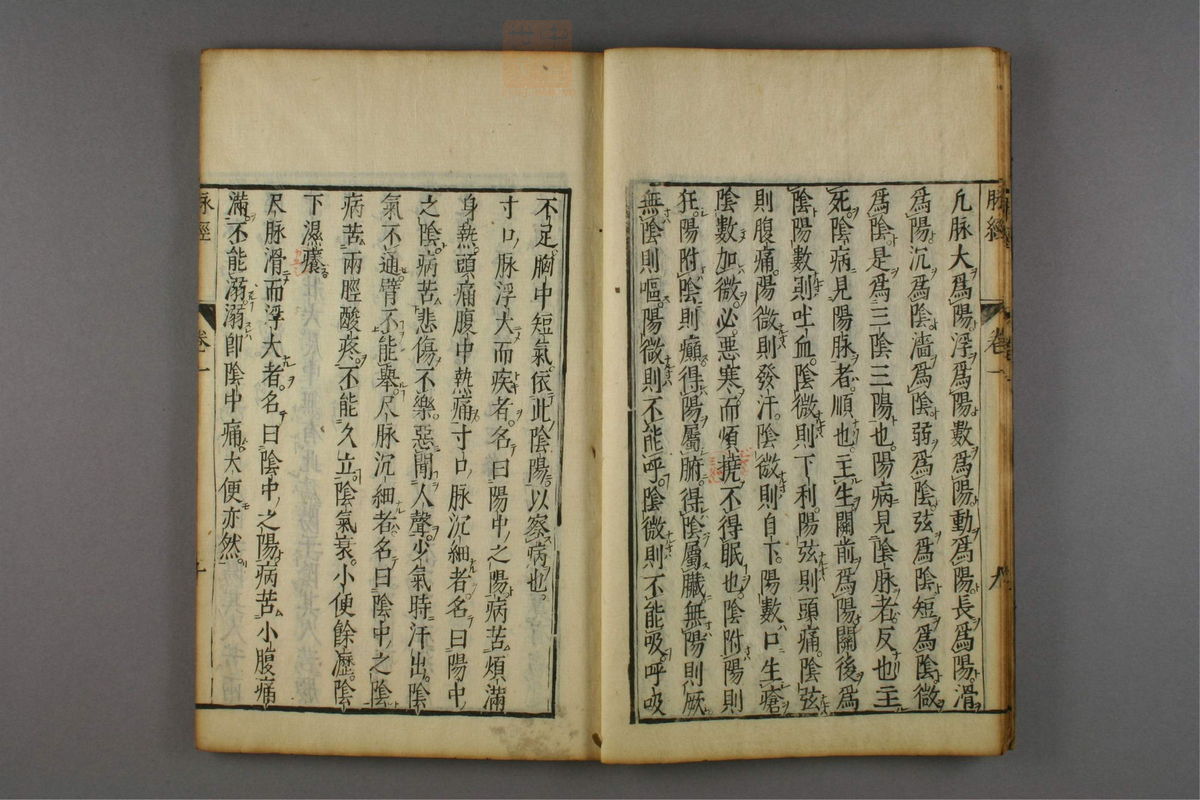 凡脉大爲陽浮爲陽數爲陽動爲陽長爲陽滑
爲陽沉爲陰濇爲陰弱爲陰弦爲陰短爲陰微
爲陰是爲三陰三陽也陽病見陰脉者反也主
死陰病見陽脉者順也主生關前爲陽關後爲
陰陽數則吐血陰微則下利陽弦則頭痛陰弦
則腹痛陽微則發汗陰微則自下陽數口生瘡
陰數加微必惡寒而煩撓不得眠也陰附陽則
狂陽附陰則癲得陽屬腑得陰屬臟無陽則厥
無陰則嘔陽微則不能呼陰微則不能吸呼吸
脉經 卷一 九
不足胸中短氣依此陰陽以察病也
寸口脉浮大而疾者名曰陽中之陽病苦煩滿
身熱頭痛腹中熱痛寸口脉沉細者名曰陽中
之陰病苦悲傷不樂惡聞人聲少氣時汗出陰
氣不通臂不能舉尺脉沉細者名曰陰中之陰
病苦兩脛酸疼不能久立陰氣衰小便餘瀝陰
下濕癢
尺脉滑而浮大者名曰陰中之陽病苦小腹痛
滿不能溺溺卽陰中痛大便亦然
脉經 卷一